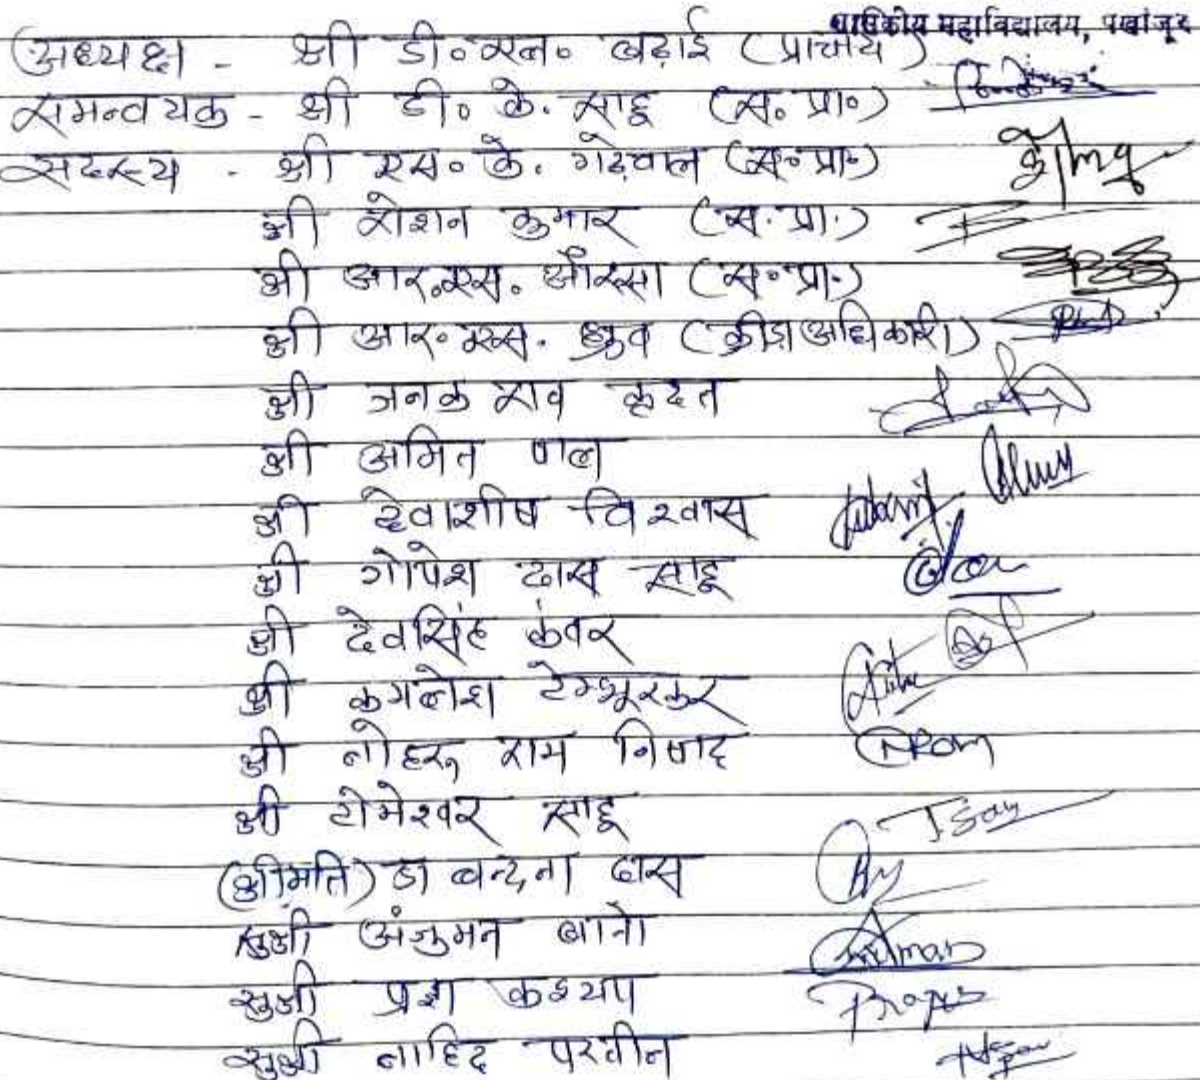 शासकीय महाविद्यालय, पखांजूर
अध्यक्ष - श्री डी॰ एन॰ बढ़ाई (प्राचार्य)
समन्वयक - श्री डी॰ के. साहू (स॰ प्रा॰)
सदस्य - श्री एस॰ के. गदेवाल (स॰ प्रा॰)
श्री रोशन कुमार (स. प्रा.)
श्री आर.एस. (स॰ प्रा.)
श्री आर॰ एस. ध्रुव (क्रीड़ा अधिकारी)
श्री जनक राव कृदत
श्री अमित पाल
श्री देवाशीष विश्वास
श्री गोपेश दास साहू
श्री देवसिंह कंवर
श्री कमलेश टेम्भूरकर
श्री लोहरू राम निषाद
श्री टोमेश्वर साहू
(श्रीमति) डा बन्दना दास
सुश्री अंजुमन बानो
सुश्री प्रज्ञा कश्यप
सुश्री नाहिद परवीन